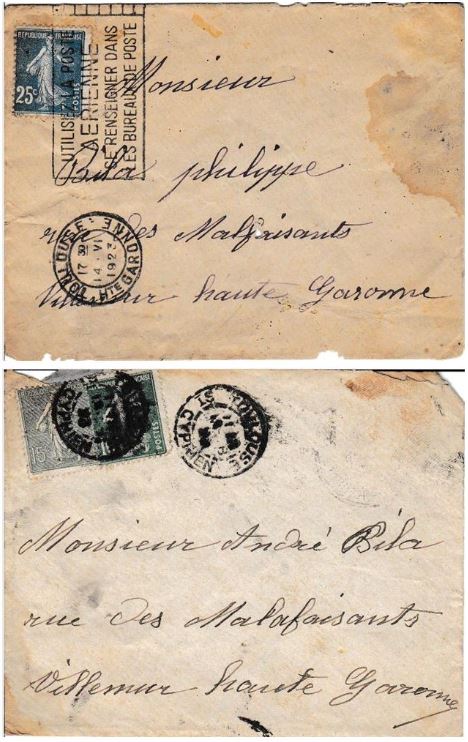 RÉPUBLIQUE FRANÇAISE
25c
POSTES
UTILISEZ LA POSTE
AÉRIENNE
SE RENSEIGNER DANS
LES BUREAUX DE POSTE
Monsieur
Bila philippe
rue des Malfaisants
Villemur haute Garonne
TOULOUSE
17 30
14 · VI
1923
Hte GARONNE
15c
POSTES
TOULOUSE
ST CYPRIEN
Monsieur André Bila
rue des Malafaisants
Villemur haute Garonne